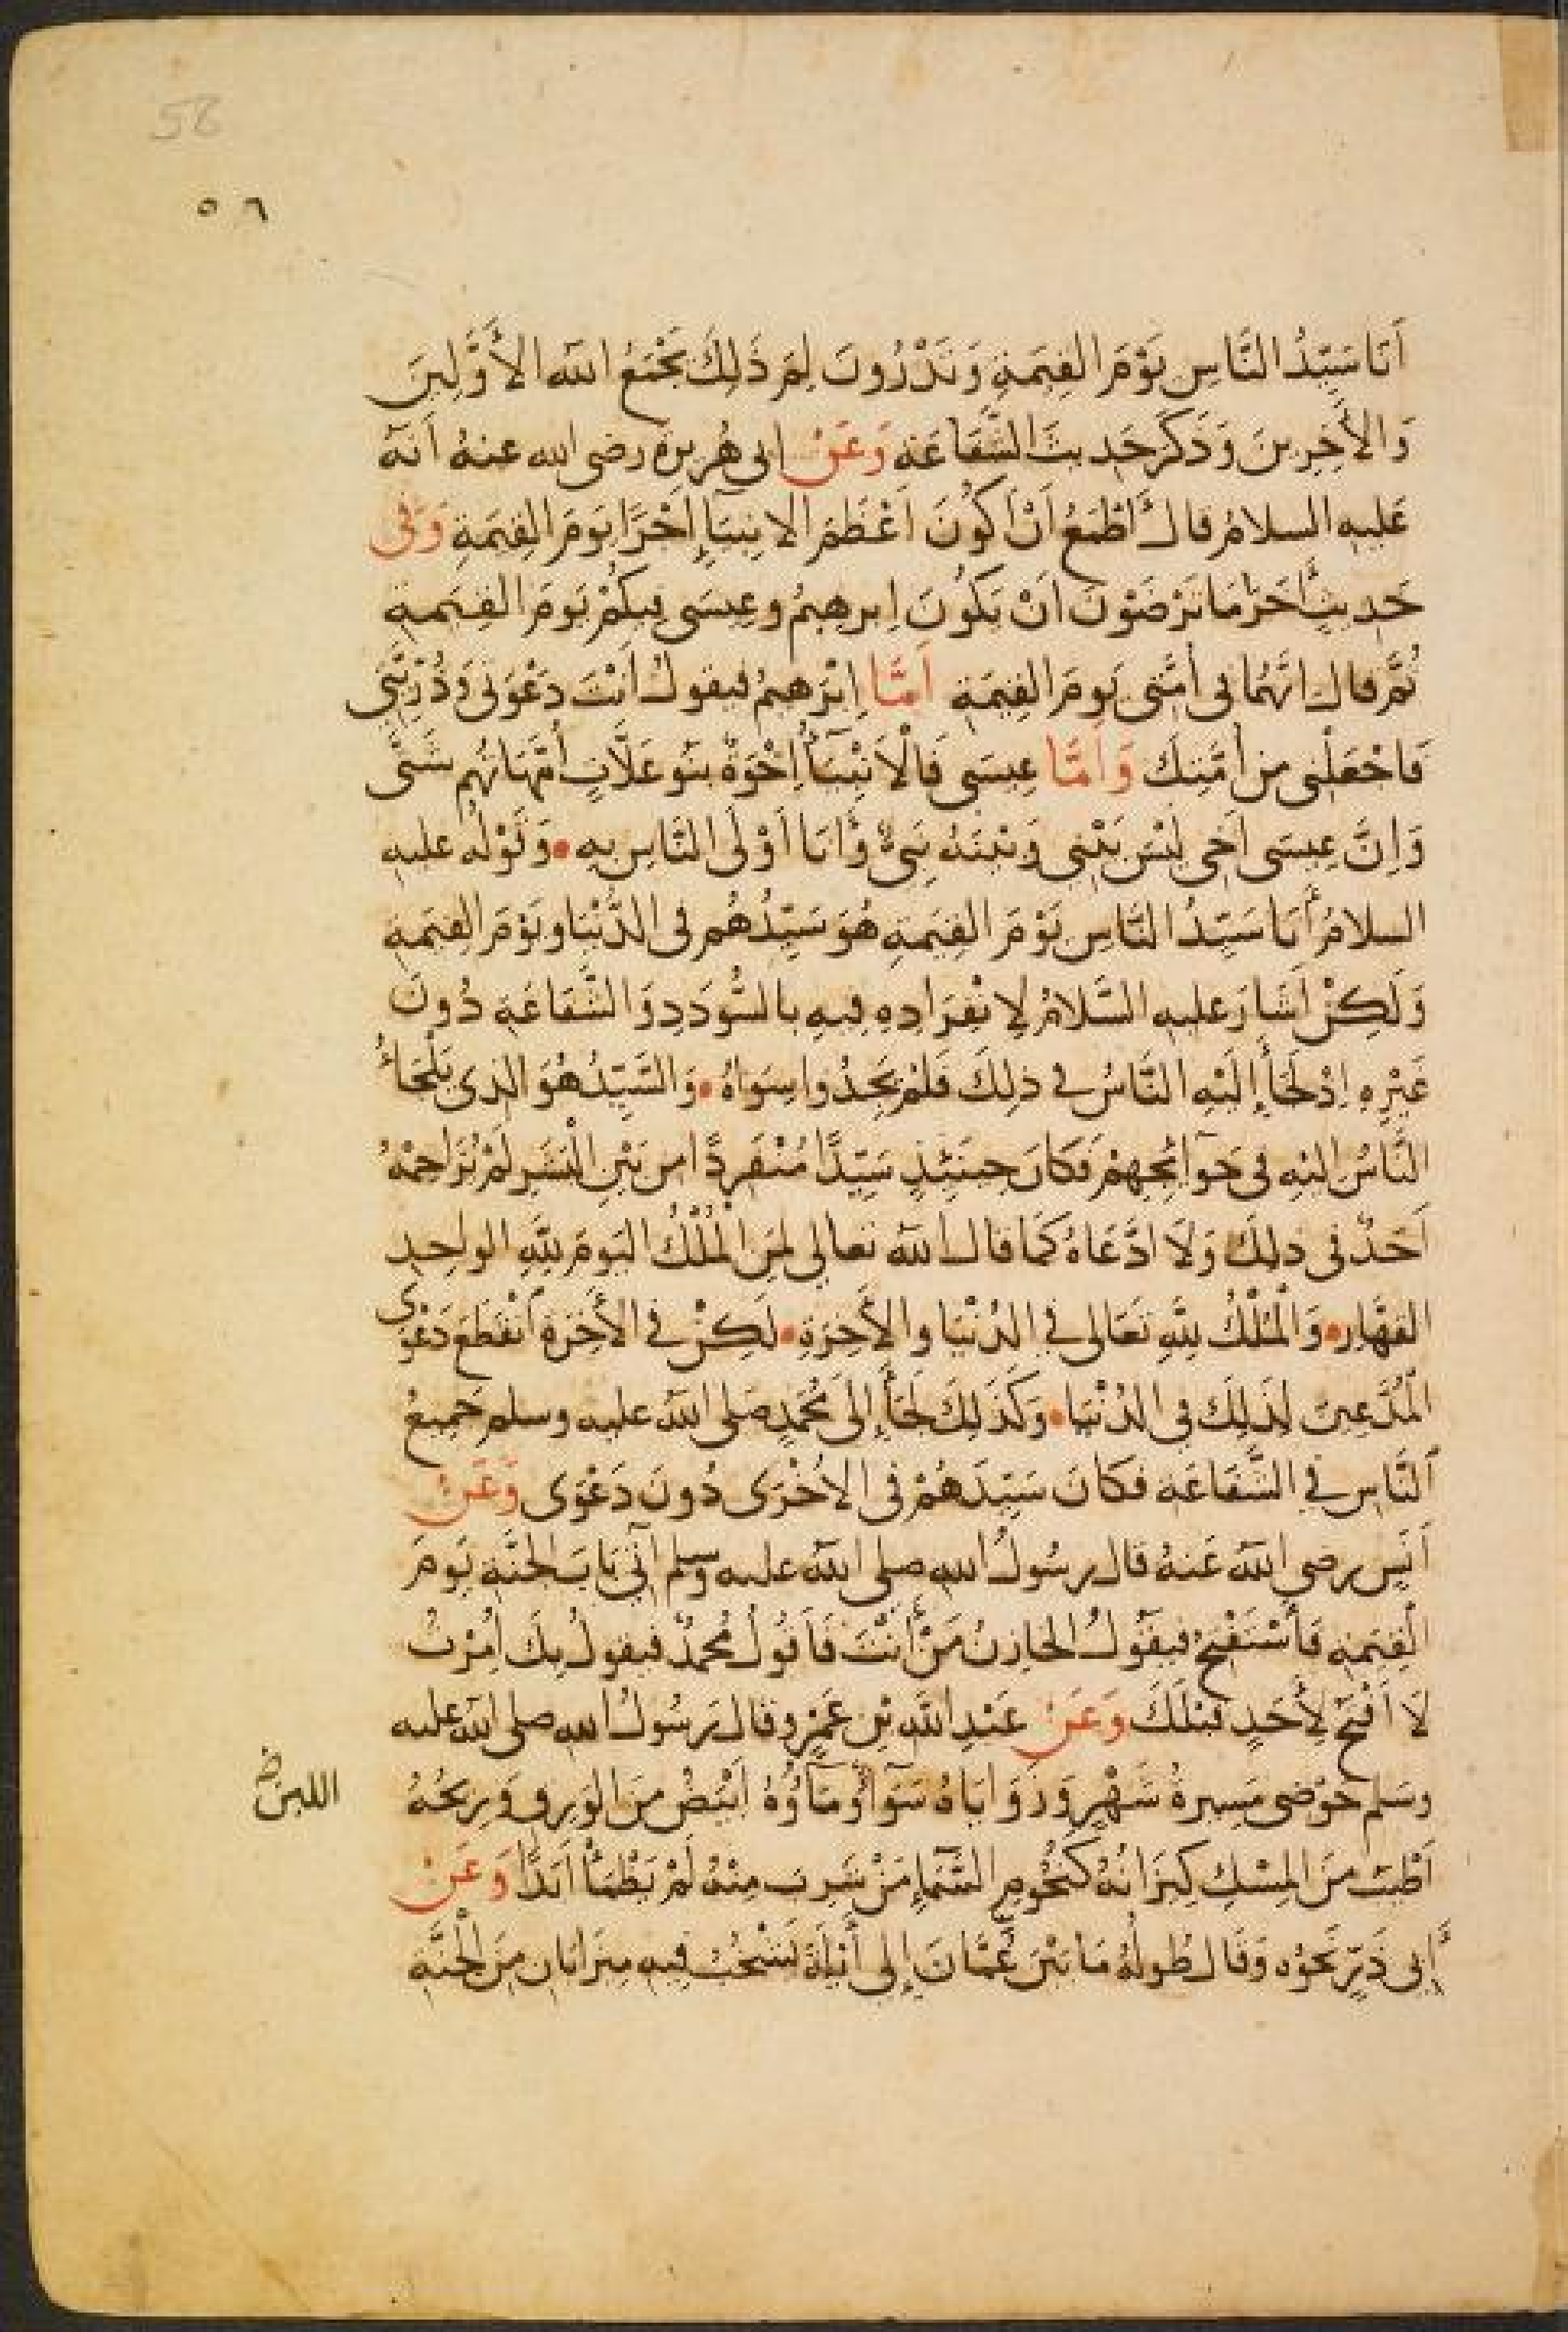 56
٥٦
أَنَا سَيِّدُ النَّاسِ يَوْمَ الْقِيٰمَةِ وَتَدْرُونَ لِمَ ذَلِكَ يَجْمَعُ اللهُ الأَوَّلِينَ
وَالأَخِرِينَ وَذَكَرَ حَدِيثَ الشَّفَاعَةِ وَعَنْ ابى هُرَيرَة رضى الله عنهُ انَهُ
عَليهِ السلامُ قال أَطْمَعُ أَنْ أَكُونَ أَعْظَمَ الانبِيَآءِ أَجْرًا يَومَ القِيمَةِ وَفى
حَدِيثٍ أَخَرَ أَمَا تَرْضَوْنَ أَنْ يَكُونَ إِبرهِيمُ وعِيسَى فِيكُمْ يَومَ القِيمَةِ
ثُمَّ قال انَّهُمَا فى أُمَّتى يَومَ القِيمَةِ أَمَّا إِبْرَهيمُ فيقولُ أَنْتَ دَعْوَتى وَذُرِّيَّتِى
فَاجْعَلْنِى من أُمَّتِكَ وَأَمَّا عِيسَى فَالأَنْبِيَآءُ إِخْوَةٌ بَنُو عَلَّاتٍ أُمَّهَاتُهُم شَتَّى
وَإِنَّ عِيسَى أَخِى لَيْسَ بَيْنِى وَبَيْنَهُ نَبِىٌّ وَأَنَا أَوْلَى النَّاسِ بِهِ • وَقَوْلُه عليه
السلامُ أَنَا سَيِّدُ النَّاسِ يَوْمَ القِيمَةِ هُوَ سَيِّدُهُم فى الدُّنْيَا وَيَوْمَ القِيمَةِ
وَلَكِنْ أَشَارَ عليهِ السَّلامُ لِانْفِرَادِهِ فِيهِ بالسُّودَدِ وَالشَّفَاعَةِ دُونَ
غَيْرِهِ إِذْ لَجَأَ إِلَيْهِ النَّاسُ في ذلِكَ فَلَمْ يَجِدُوا سِوَاهُ • وَالسَّيِّدُ هُوَ الذى يَلْجَأُ
النَّاسُ اليْهِ فى حَوَآئِجِهِمْ فَكَانَ حِينَئِذٍ سَيِّدًا مُنْفَرِدًا من بَيْنِ الْبَشَرِ لَمْ يُزَاحِمْهُ
أَحَدٌ فى ذلِكَ وَلَا ادَّعَاهُ كَمَا قال اللهُ تعالى لِمَنِ الْمُلْكُ اليَومَ لِلَّهِ الواحِدِ
القهَّارِ • وَالْمُلْكُ لِلَّهِ تَعَالى في الدُنْيَا والأَخِرَةِ • لَكِنْ في الأَخِرَةِ انْقَطَعَ دَعْوَى
الْمُدَّعِينَ لِذَلِكَ فى الدُنْيَا • وَكَذَلِكَ لَجَأَ إِلَى مُحَمَّدٍ صَلى اللهُ عليه وسلم جَمِيعُ
النَّاسِ في الشَّفَاعَةِ فكَانَ سَيِّدَهُمْ فى الأُخْرَى دُونَ دَعْوَى وَعَنْ
أَنَسٍ رضى اللهُ عَنهُ قال رسُولُ الله صلى اللهُ عليه وسلم آتِى بَابَ الجنَّةِ يَومَ
الْقِيمَةِ فَأَسْتَفْتِحُ فيَقُولُ الخازِنُ مَنْ أَنْتَ فَأَقُولُ مُحمدٌ فيقولُ بِكَ أُمِرْتُ
لَا أَفْتَحُ لِأَحَدٍ قبْلَكَ وَعَنْ عَبْدِ اللَّهِ بْنِ عَمْرٍو قال رَسُولُ الله صلى اللهُ عليه
وسَلم حَوْضى مَسِيرةُ شَهْرٍ وَزَوَايَاهُ سَوَآءٌ وَمَآؤُهُ أَبْيَضُ مِنَ الوَرِقِ وَرِيحُهُ
اللبن
أَطْيَبُ مِنَ المِسْكِ كِيزَانُهُ كَنُجُومِ السَّمَآءِ مَنْ شَرِبَ مِنْهُ لَمْ يَظْمَأْ أَبَدًا وَعَنْ
أَبِى ذَرٍّ نَحْوُه وَقَال طُولُهُ مَا بَيْنَ عَمَّانَ إِلَى أَيْلَةَ يَشْخُبُ فِيهِ مِيزَابَانِ مِنَ الْجَنَّةِ